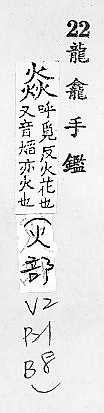 22 龍龕手鑑
燚
呼覓反火花也
又音焰亦火也
(火部
V2
P41
B8)